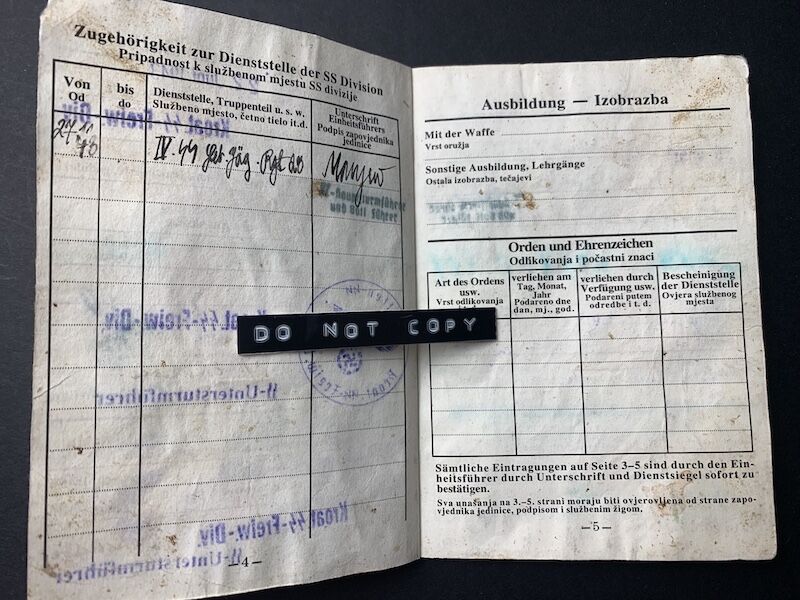 Zugehörigkeit zur Dienststelle der SS Division
Pripadnost k službenom mjestu SS divizije
Von
Od
bis
do
Dienststelle, Truppenteil u. s. w.
Službeno mjesto, četno tielo it.d.
Unterschrift
Einheitsführers
Podpis zapovjednika
jedinice
Kroat. SS-Freiw.-Div.
SS-Hauptsturmführer
und Btl. Führer
Kroat. SS-Freiw.-Div.
SS-Untersturmführer
Kroat. SS-Freiw.-Div.
SS-Untersturmführer
—4—
DO NOT COPY
Ausbildung — Izobrazba
Mit der Waffe
Vrst oružja
Sonstige Ausbildung, Lehrgänge
Ostala izobrazba, tečajevi
Orden und Ehrenzeichen
Odlikovanja i počastni znaci
Art des Ordens
usw.
Vrst odlikovanja
verliehen am
Tag, Monat,
Jahr
Podareno dne
dan, mj., god.
verliehen durch
Verfügung usw.
Podareni putem
odredbe i t. d.
Bescheinigung
der Dienststelle
Ovjera službenog
mjesta
Sämtliche Eintragungen auf Seite 3–5 sind durch den Ein-
heitsführer durch Unterschrift und Dienstsiegel sofort zu
bestätigen.
Sva unašanja na 3.–5. strani moraju biti ovjerovljena od strane zapo-
vjednika jedinice, podpisom i službenim žigom.
—5—